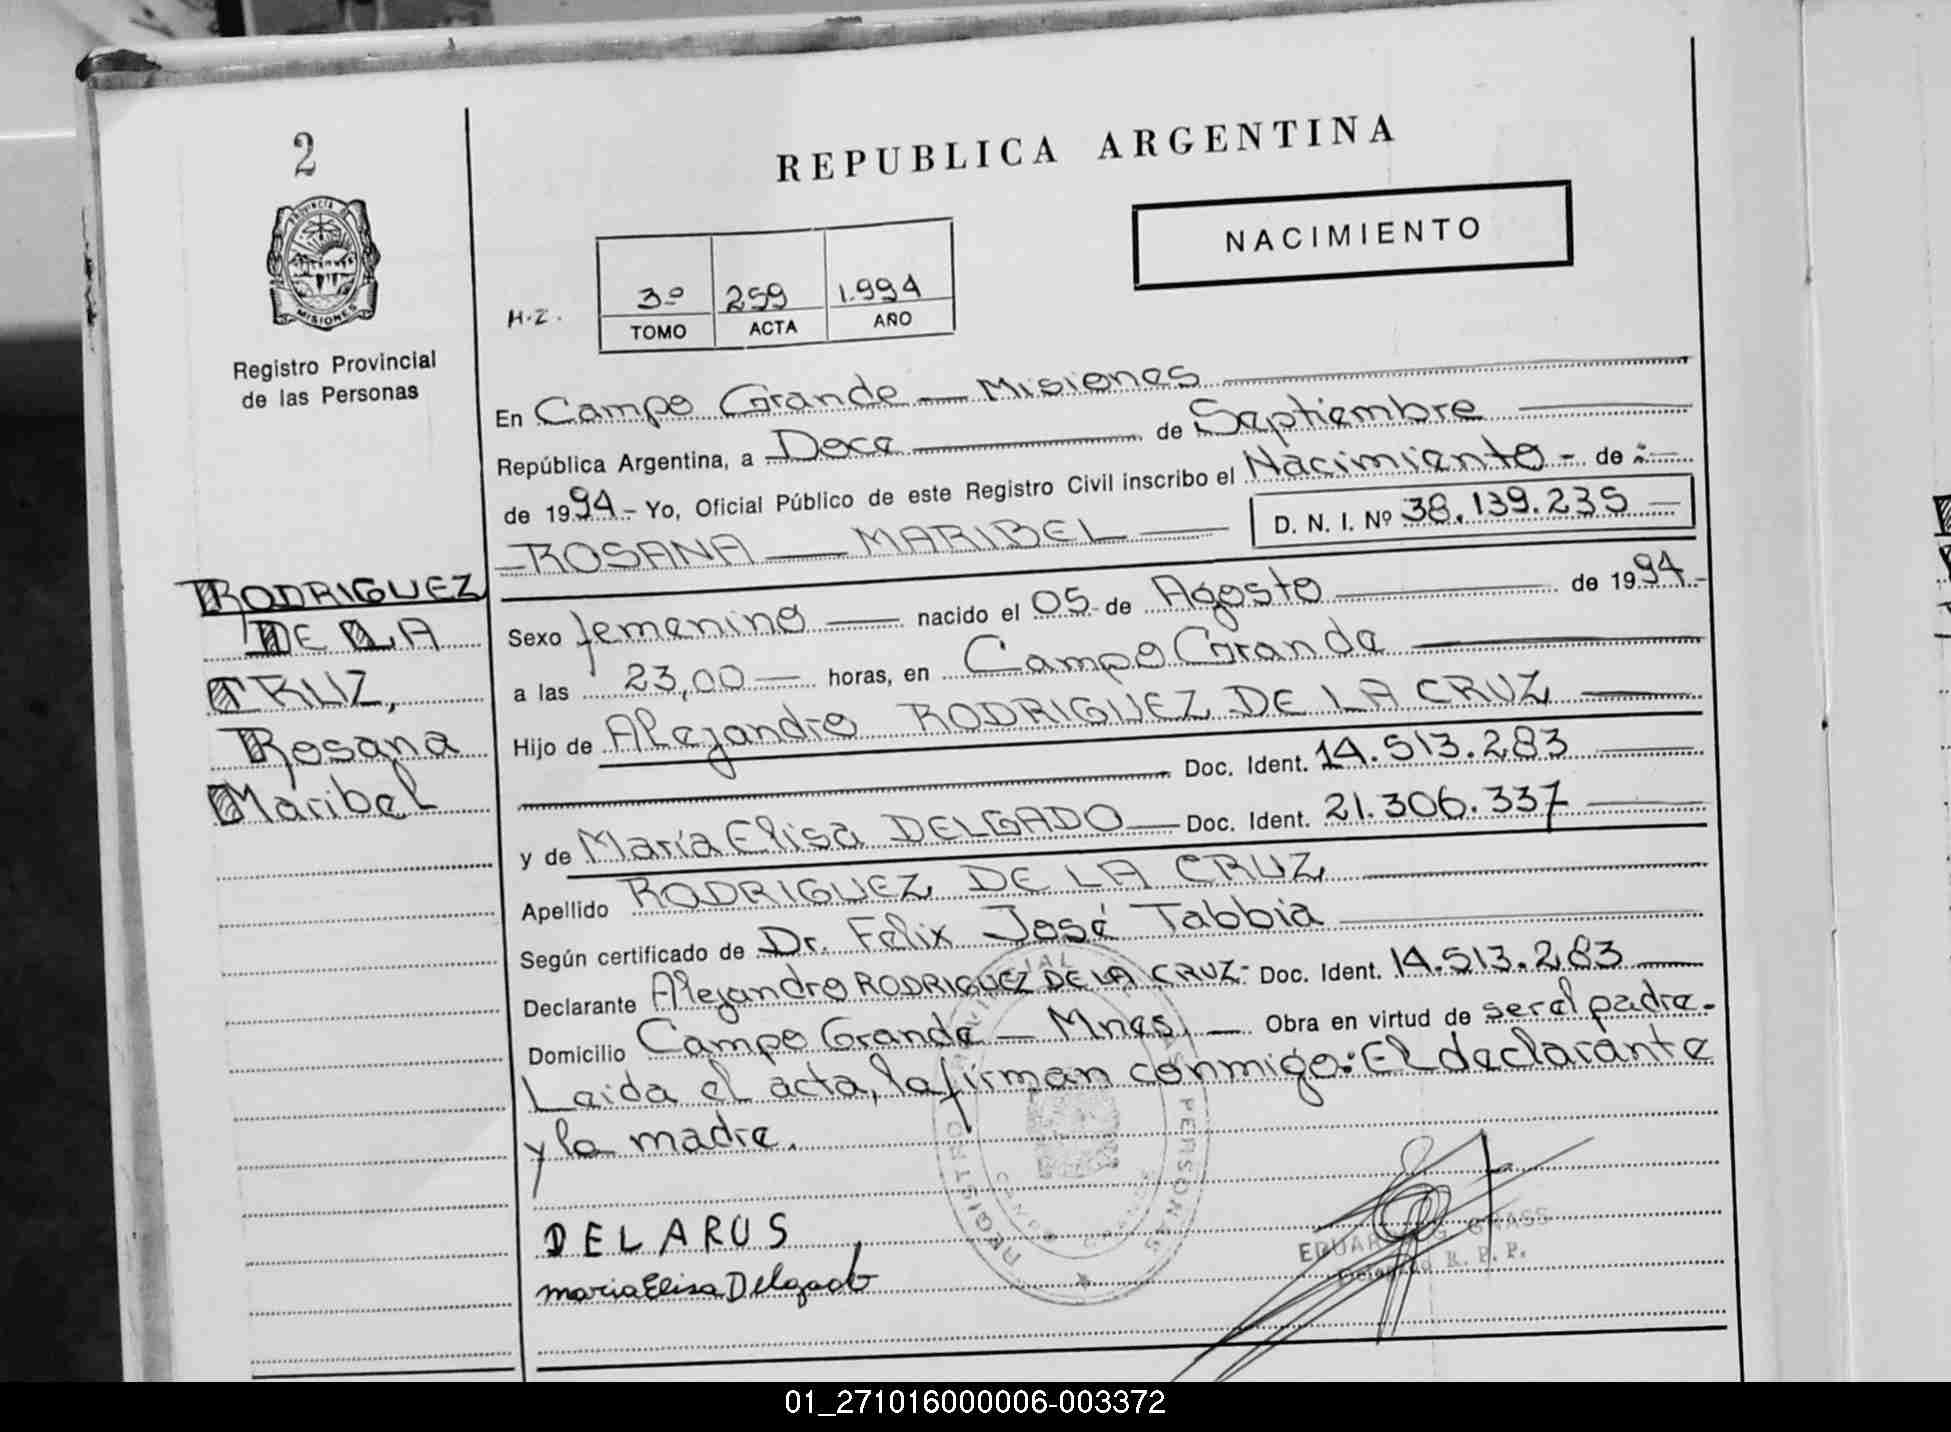 2
REPUBLICA ARGENTINA
PROVINCIA DE
MISIONES
Registro Provincial
de las Personas
NACIMIENTO
H.Z.
3º 259 1.994
TOMO ACTA AÑO
En Campo Grande — Misiones
República Argentina, a Doce — de Septiembre —
de 1994.- Yo, Oficial Público de este Registro Civil inscribo el Nacimiento - de :—
— ROSANA — MARIBEL — D. N. I. Nº 38.139.235 —
RODRIGUEZ
DE LA
CRUZ,
Rosana
Maribel
Sexo femenino — nacido el 05 - de Agosto — de 1994.-
a las 23,00 — horas, en Campo Grande —
Hijo de Alejandro RODRIGUEZ DE LA CRUZ —
Doc. Ident. 14.513.283 —
y de María Elisa DELGADO — Doc. Ident. 21.306.337 —
Apellido RODRIGUEZ DE LA CRUZ —
Según certificado de Dr. Felix José Tabbia —
Declarante Alejandro RODRIGUEZ DE LA CRUZ- Doc. Ident. 14.513.283 —
Domicilio Campo Grande — Mnes. — Obra en virtud de ser el padre.-
Leida el acta, la firman conmigo: El declarante
y la madre.
REGISTRO PROVINCIAL LAS PERSONAS
CAMPO GRANDE
DELARUS
maria Elisa Delgado
EDUARDO G. GRASS
R. P. P.
01_271016000006-003372